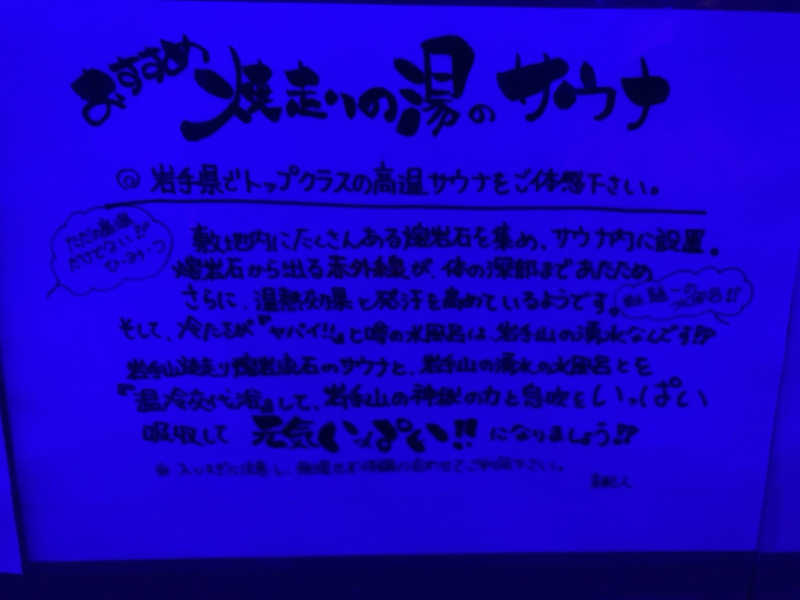 おすすめ 焼走りの湯のサウナ
◎ 岩手県でトップクラスの高温サウナをご体感下さい。
敷地内にたくさんある熔岩石を集め、サウナ内に設置。
熔岩石から出る赤外線が、体の深部まであたため
さらに、温熱効果と発汗を高めているようです。
そして、冷たさが『ヤバイ!!』と噂の水風呂は、岩手山の湧水なんです!?
岩手山焼走り熔岩流石のサウナと、岩手山の湧水の水風呂とを
『温冷交代浴』して、岩手山の神秘の力と息吹をいっぱい
吸収して 元気いっぱい!! になりましょう!?
ただの高温
だけでないが
水風呂!!